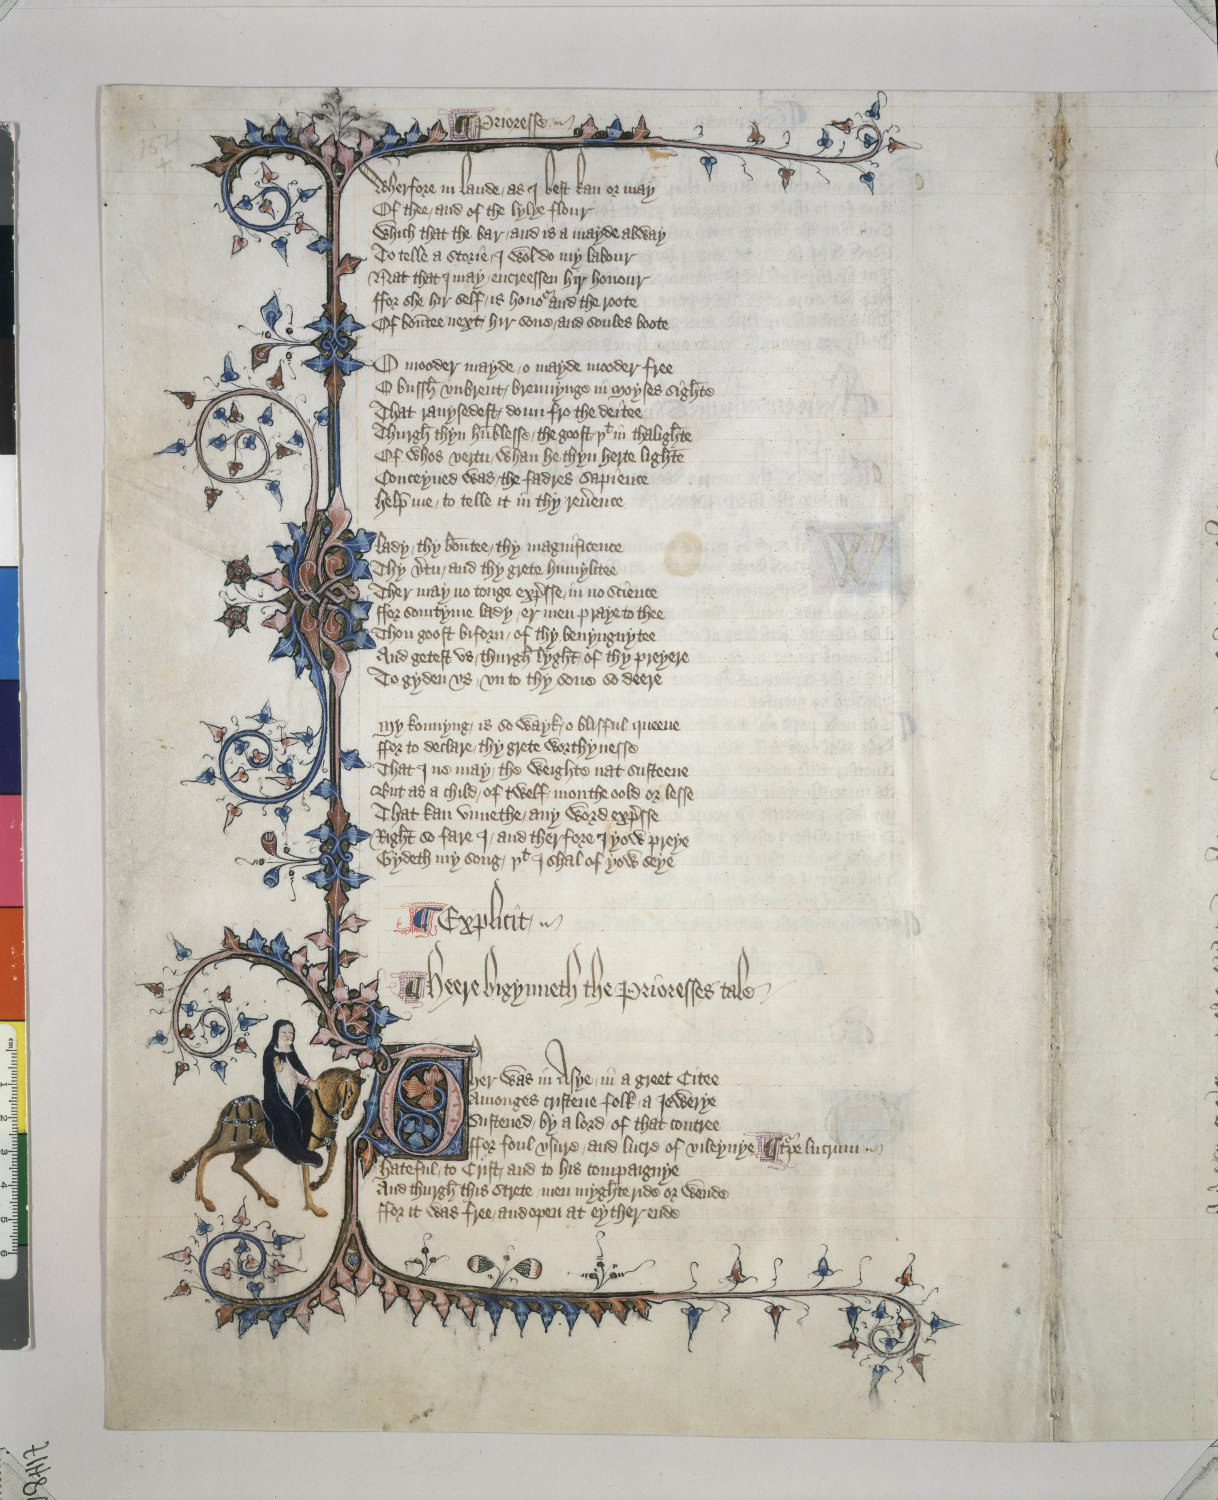 ¶ Prioresse
Wherfore in laude / as I best kan or may
Of thee / and of the lylye flour
Which that the bar / and is a mayde alway
To telle a storie / I wol do my labour
Nat that I may / encreessen hir honour
ffor she hir self / is honoᵘʳ and the roote
Of bountee next / hir sone / and soules boote
O mooder mayde / o mayde mooder free
O bussh vnbrent / brennynge in Moyses sighte
That rauysedest / doun fro the deitee
Thurgh thyn humblesse / the goost / þᵗ in thalighte
Of whos vertu / whan he thyn herte lighte
Conceyued was / the fadres sapience
Help me / to telle it in thy reuerence
Lady / thy bountee / thy magnificence
Thy vertu / and thy grete humylitee
Ther may no tonge expresse / in no science
ffor somtyme lady / er men praye to thee
Thou goost biforn / of thy benyngnytee
And getest vs / thurgh lyght / of thy preyere
To gyden vs / vn to thy sone so deere
My konnyng / is so wayk / o blisful queene
ffor to declare / thy grete worthynesse
That I ne may / the weighte nat susteene
But as a child / of twelf monthe oold or lesse
That kan vnnethe / any word expresse
Right so fare I / and therfore I yow preye
Gydeth my song / þᵗ I shal of yow seye
¶ Explicit
¶ Heere bigynneth the Prioresses tale
Ther was in Asye / in a greet Citee
Amonges cristene folk / a Jewerye
Sustened / by a lord of that contree
ffor foul vsure / and lucre of vileynye ¶ turpe lucrum
Hateful / to Crist / and to his compaignye
And thurgh this strete / men myghte ride or wende
ffor it was free / and open at eyther ende